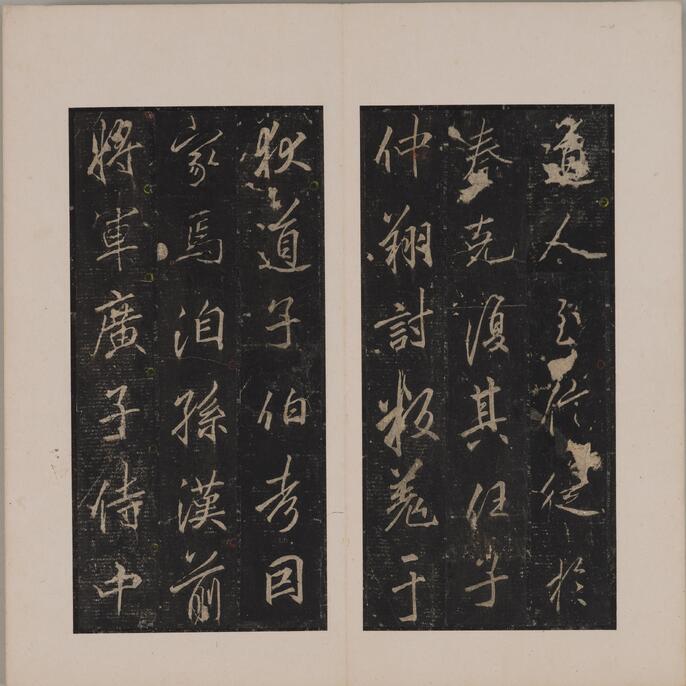 道人至信徙於
秦克復其任子
仲翔討叛羌于
狄道子伯考因
家焉洎孫漢前
將軍廣子侍中